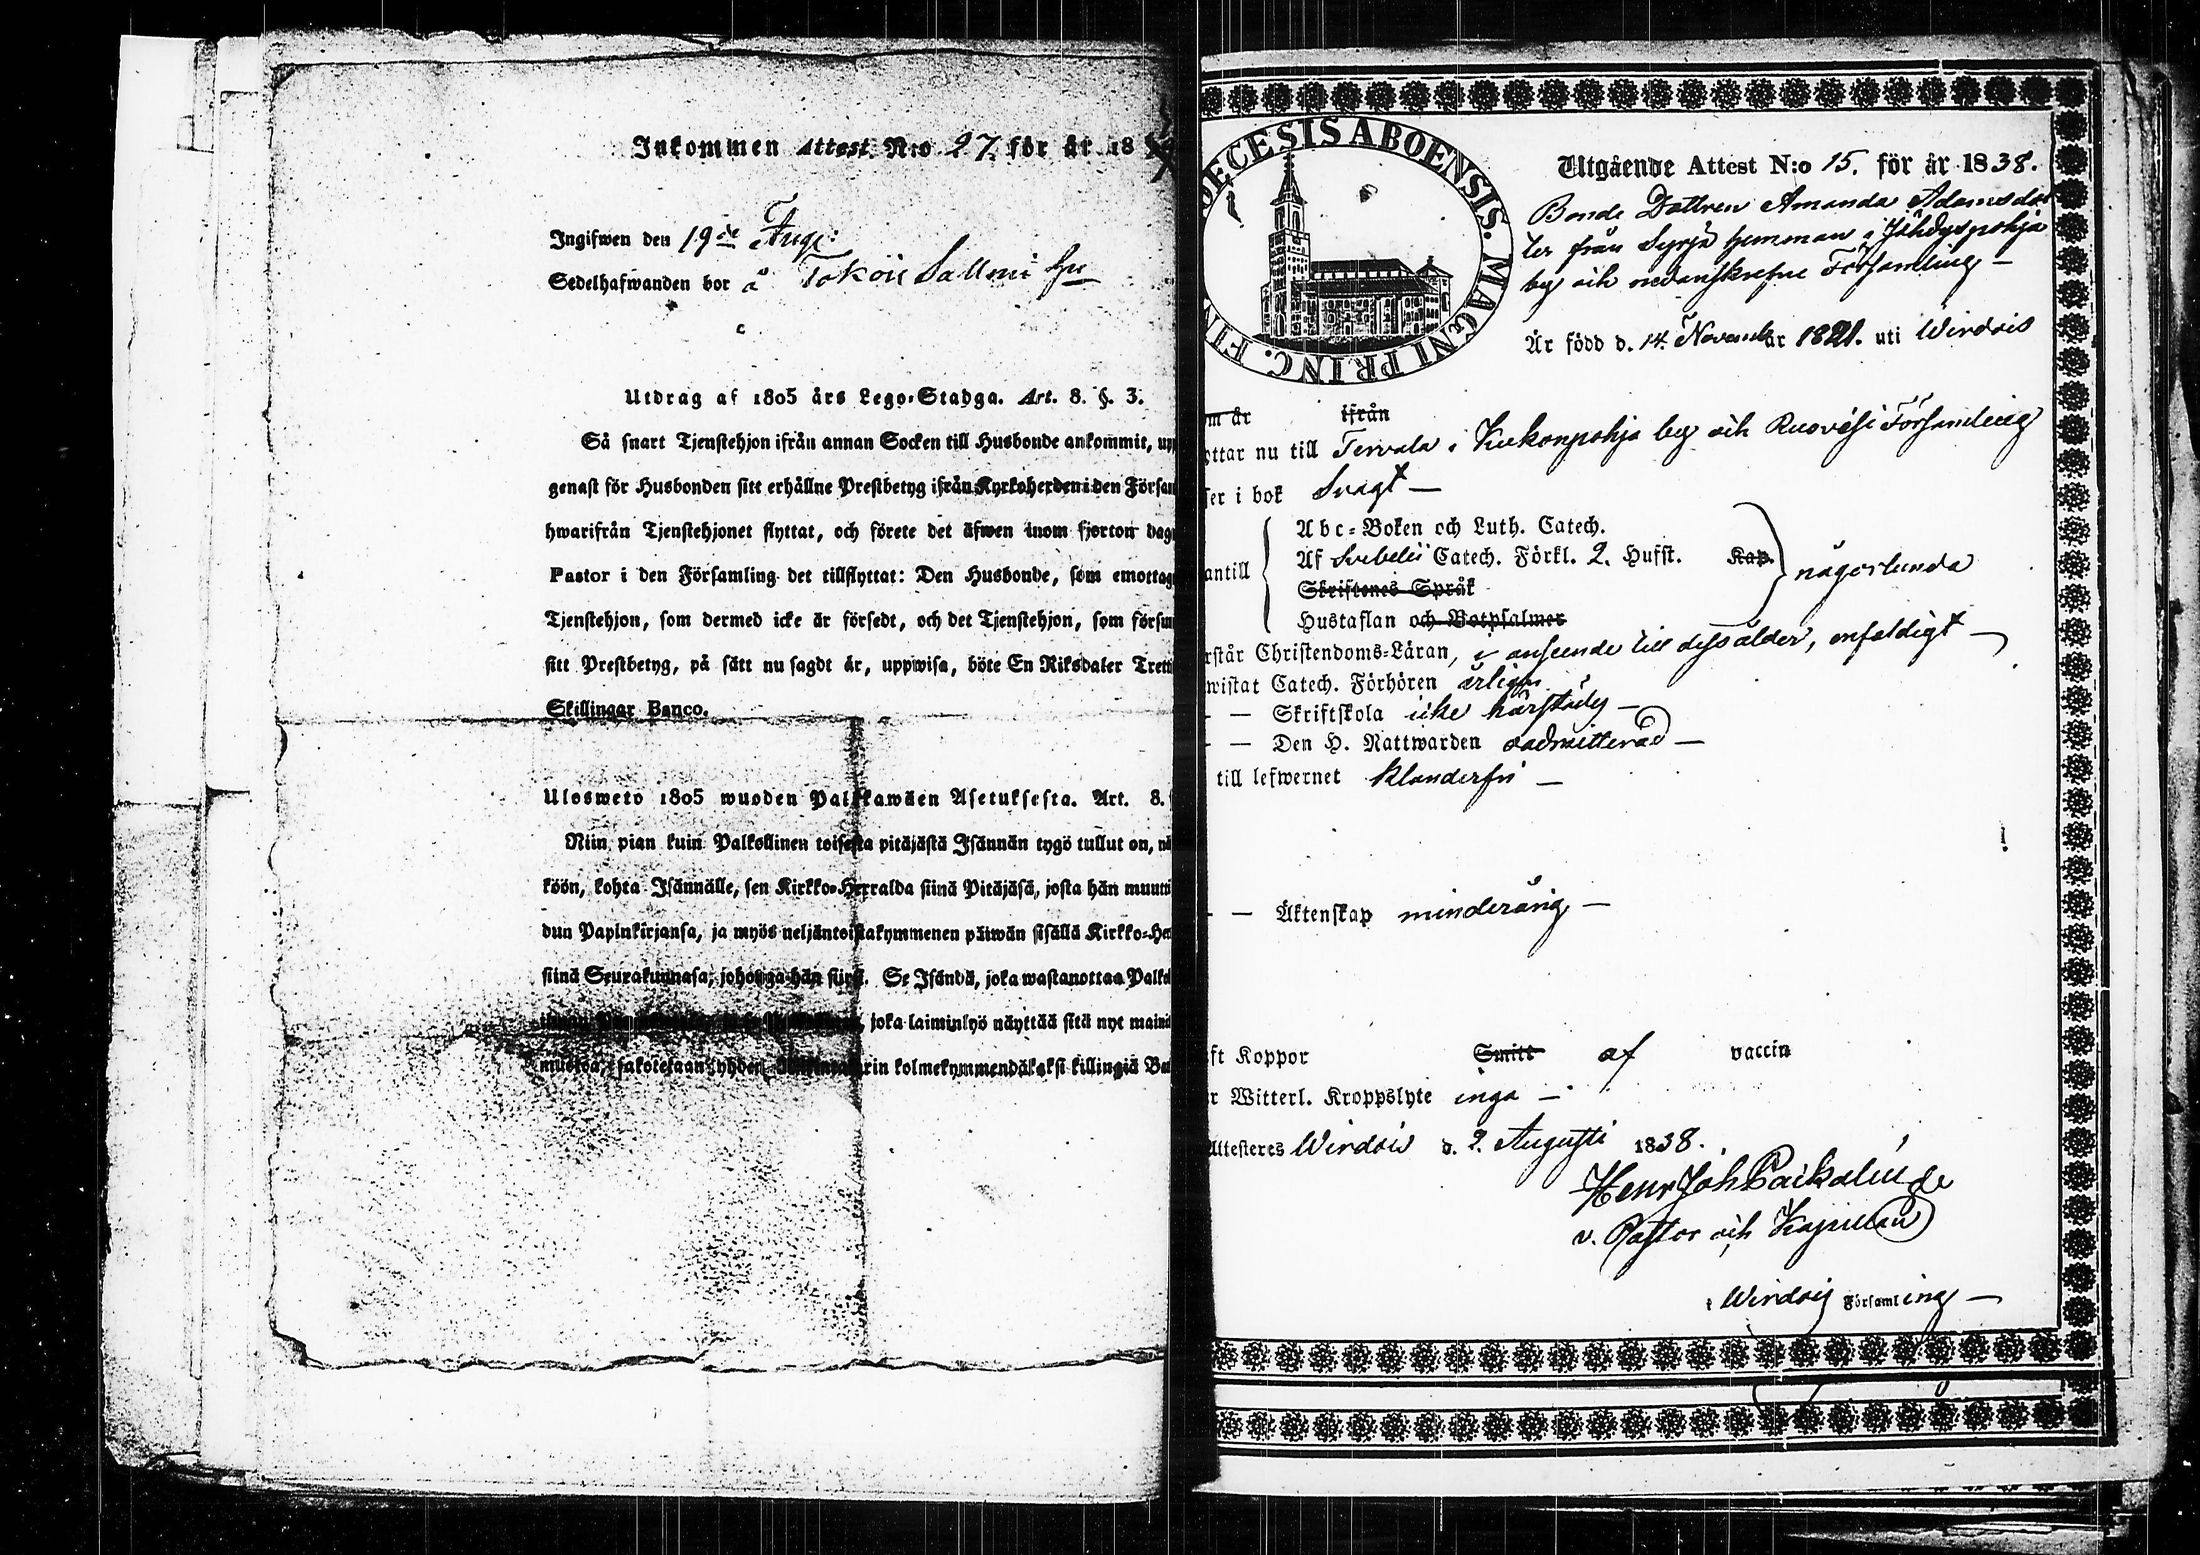 Inkommen Attest N:o 27. för år 18
Ingifwen den 19de Aug:
Sedelhafwanden bor å
Utdrag af 1805 års Lego-Stadga. Art. 8. §. 3.
Så snart Tjenstehjon ifrån annan Socken till Husbonde ankommit, upp
genast för Husbonden sitt erhållne Prestbetyg ifrån Kyrkoherden i den Försam
hwarifrån Tjenstehjonet flyttat, och förete det äfwen inom fjorton dag
Pastor i den Församling det tillflyttat: Den Husbonde, som emottag
Tjenstehjon, som dermed icke är försedt, och det Tjenstehjon, som försum
sitt Prestbetyg, på sätt nu sagdt är, uppwisa, böte En Riksdaler Tretti
Skillingar Banco.
Ulosweto 1805 wuoden Palkkawäen Asetuksesta. Art. 8.
Niin pian kuin Palkollinen toisesta pitäjästä Isännän tygö tullut on, nä
köön, kohta Isännälle, sen Kirkko-Herralda siinä Pitäjäsä, josta hän muutti
dun Papinkirjansa, ja myös neljäntoistakymmenen päiwän sisällä Kirkko-He
siinä Seurakunnasa, johonga hän siirsi. Se Isändä, joka wastanottaa Palko
joka laiminlyö näyttää sitä nyt maini
muotoa, sakotetaan yhden kolmekymmendäkaksi killingiä Ba
DECESIS ABOENSIS. MAGNI PRINC. FIN
Utgående Attest N:o 15. för år 1838.
Bonde Dottren Amanda Adamsdot
ter från Syrjä hemman i Jähdyspohja
by och nedanskrefne Församling —
Är född d. 14. Novemb år 1821. uti Wirdois
m år ifrån
ottar nu till Terwala i Kukonpohja by och Ruovesi Församling
ser i bok Svagt —
antill
Abc-Boken och Luth. Catech.
Af Svebelii Catech. Förkl. 2. Hufst. Kap.
Skriftenes Språk
Hustaflan och Botpsalmer
någorlunda
rstår Christendoms-Läran, i anseende till dess ålder, enfaldigt —
wistat Catech. Förhören årligen
— — Skriftskola icke härstädes —
— — Den H. Nattwarden oadmitterad —
till lefwernet klanderfri —
— — Äktenskap minderårig —
ft Koppor Smitt af vaccin
r Witterl. Kroppslyte inga —
Attesteres Wirdois d. 2. Augusti 1838.
Henr Joh
v. Pastor och Kapellan
i Wirdois Församling —